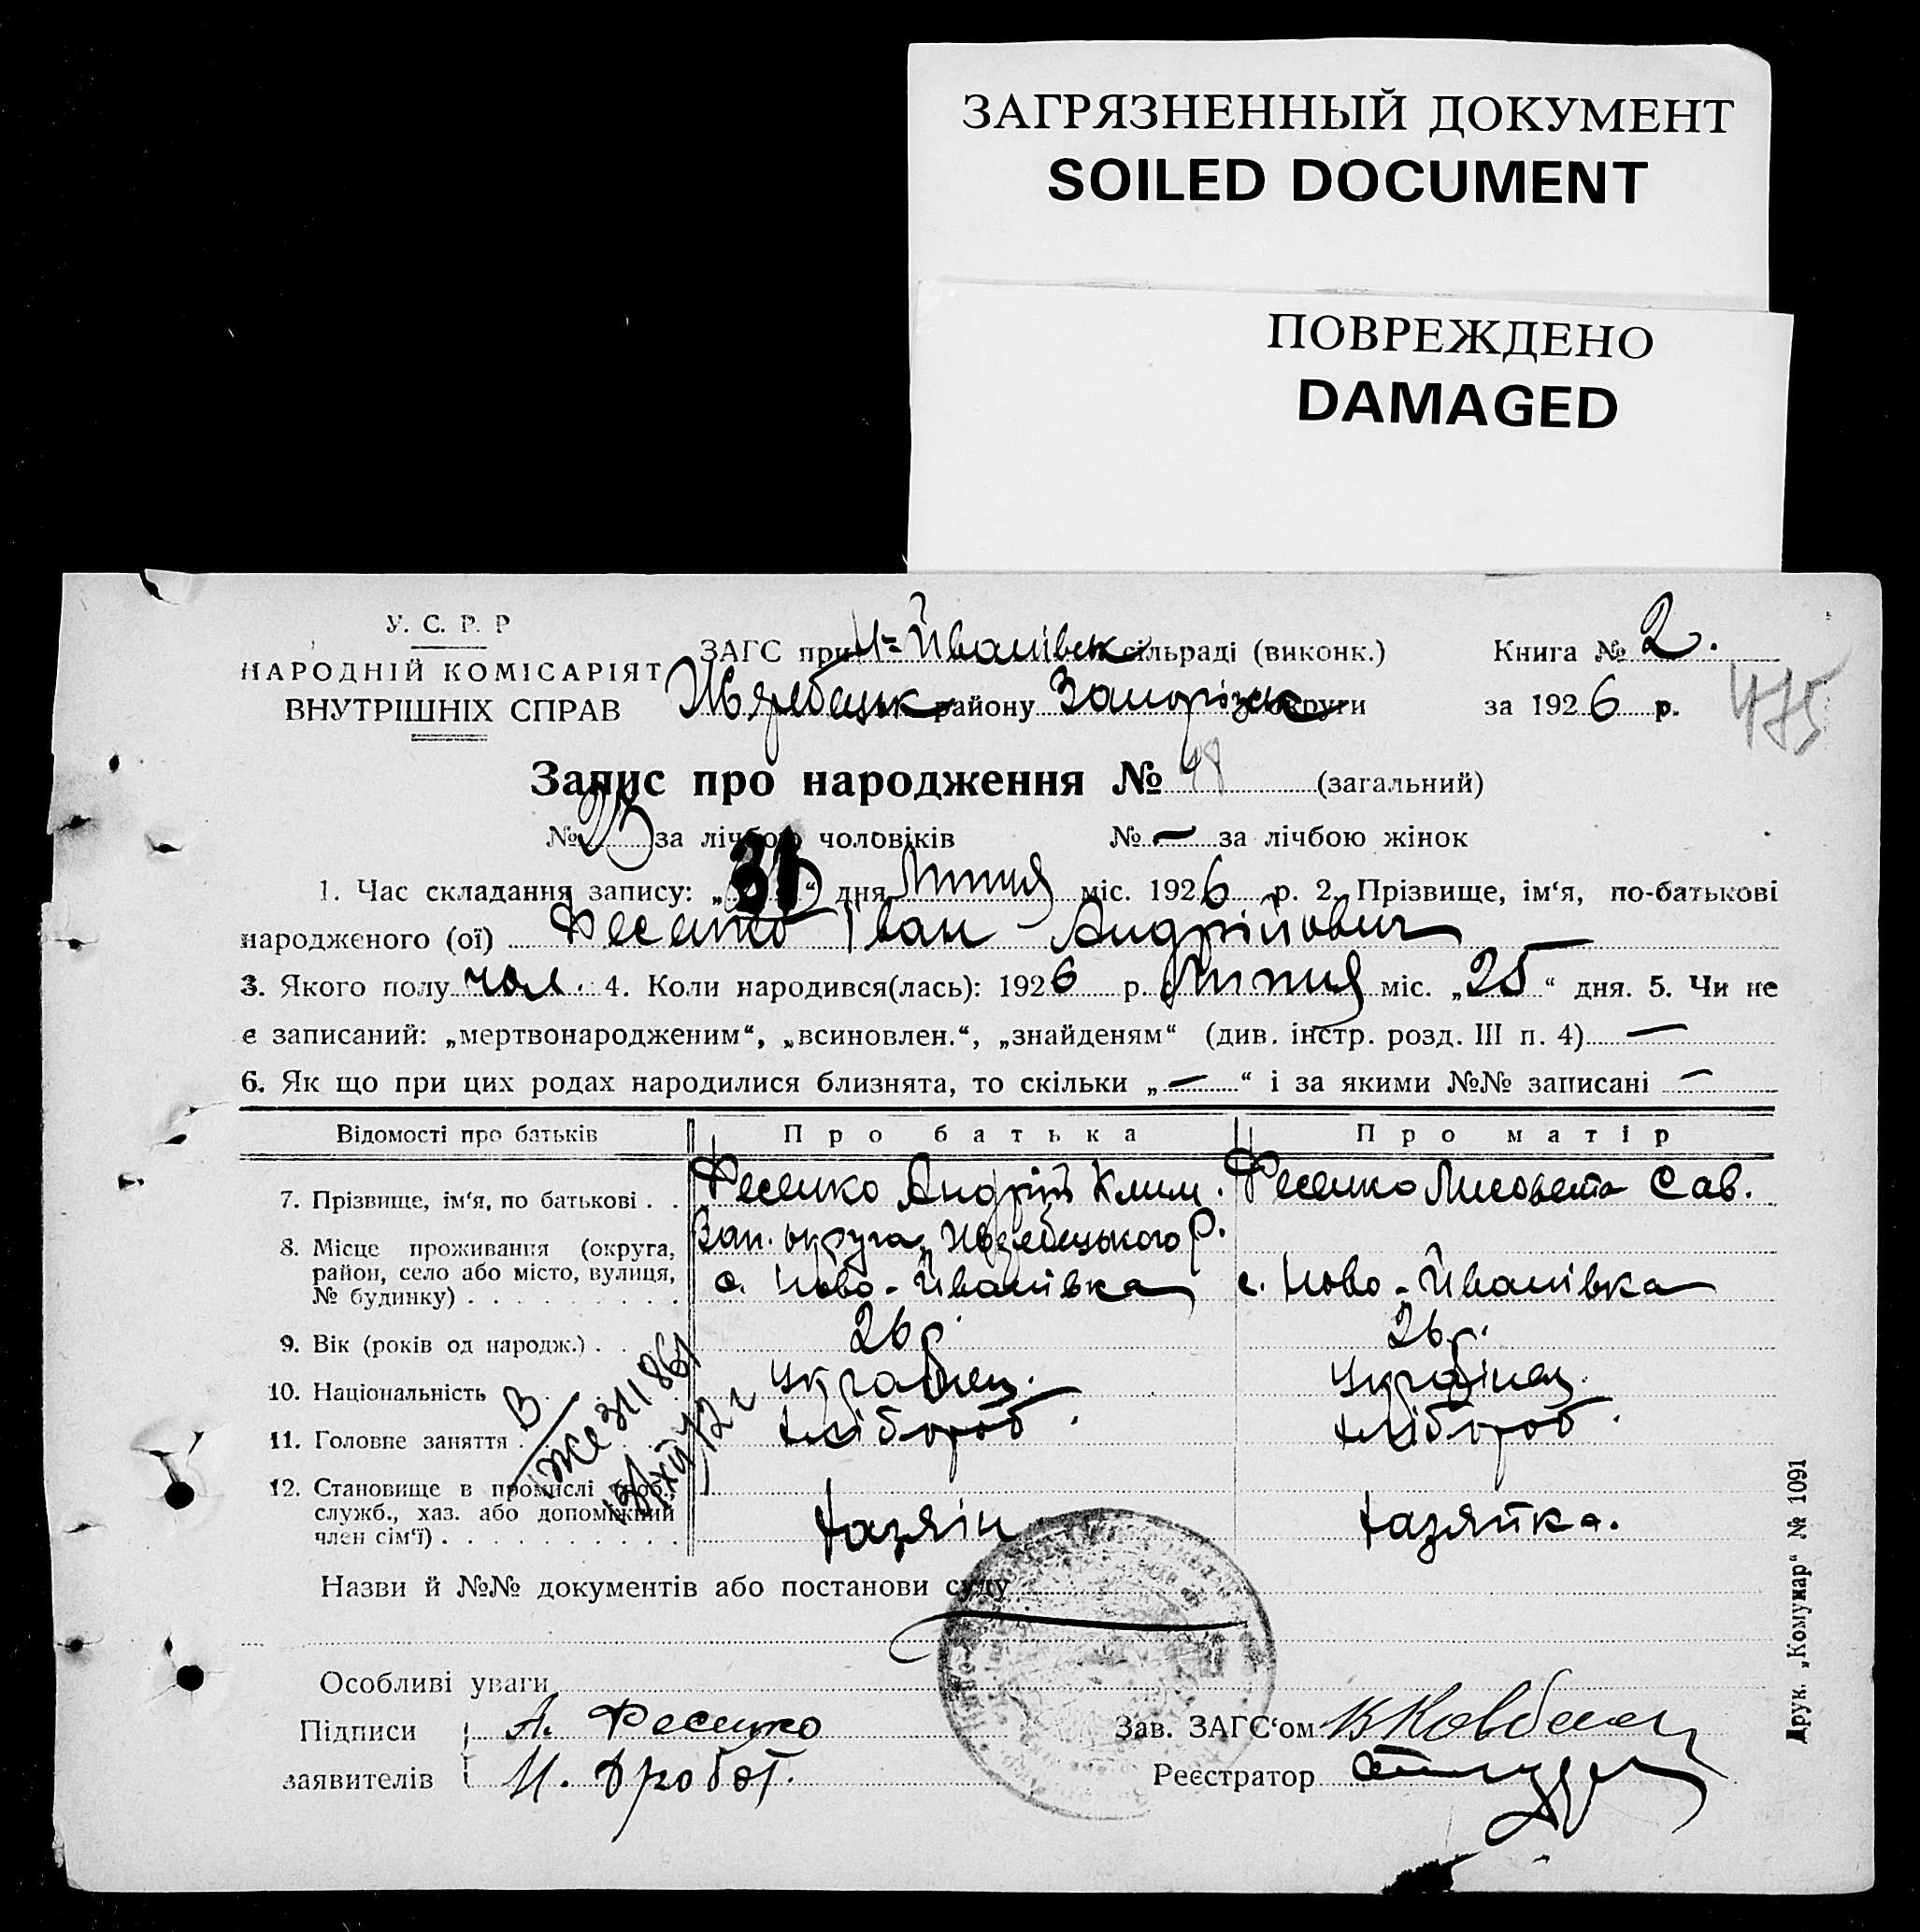 ЗАГРЯЗНЕННЫЙ ДОКУМЕНТ
SOILED DOCUMENT
ПОВРЕЖДЕНО
DAMAGED
У. С. Р. Р
НАРОДНІЙ КОМІСАРІЯТ
ВНУТРІШНІХ СПРАВ
ЗАГС при Н-Йванівськ сільраді (виконк.)
Книга № 2.
району Запорізьк округи
за 1926 р.
475
Запис про народження № 48 (загальний)
№ 25 за лічбою чоловіків № — за лічбою жінок
1. Час складання запису: „31“ дня Липця міс. 1926 р. 2. Прізвище, ім'я, по-батькові
народженого (ої) Фесенко Іван Андрійович
3. Якого полу чол. 4. Коли народився(лась): 1926 р. Липця міс. „25“ дня. 5. Чи не
є записаний: „мертвонародженим“, „всиновлен.“, „знайденям“ (див. інстр. розд. III п. 4) —
6. Як що при цих родах народилися близнята, то скільки „—“ і за якими №№ записані —
Відомості про батьків Про батька Про матір
7. Прізвище, ім'я, по батькові . . Фесенко Андрій Клим. Фесенко Лисовета Сав.
8. Місце проживання (округа, район, село або місто, вулиця, № будинку) . . . . . . . . . Зап. округа, р. с. Ново-Йванівка с. Ново-Йванівка
9. Вік (років од народж.) . . 26 р. 26 р.
10. Національність Українец. Українец.
11. Головне заняття . хлібороб. хлібороб.
12. Становище в промислі (роб., служб., хаз. або допоміжний член сім'ї) . . . . . . . . . . хазяін хазяйка.
Назви й №№ документів або постанови суду
Особливі уваги
Підписи заявителів
А. Фесенко
И. Дробот.
Зав. ЗАГС'ом
Реєстратор
Друк. „Комунар“ № 1091